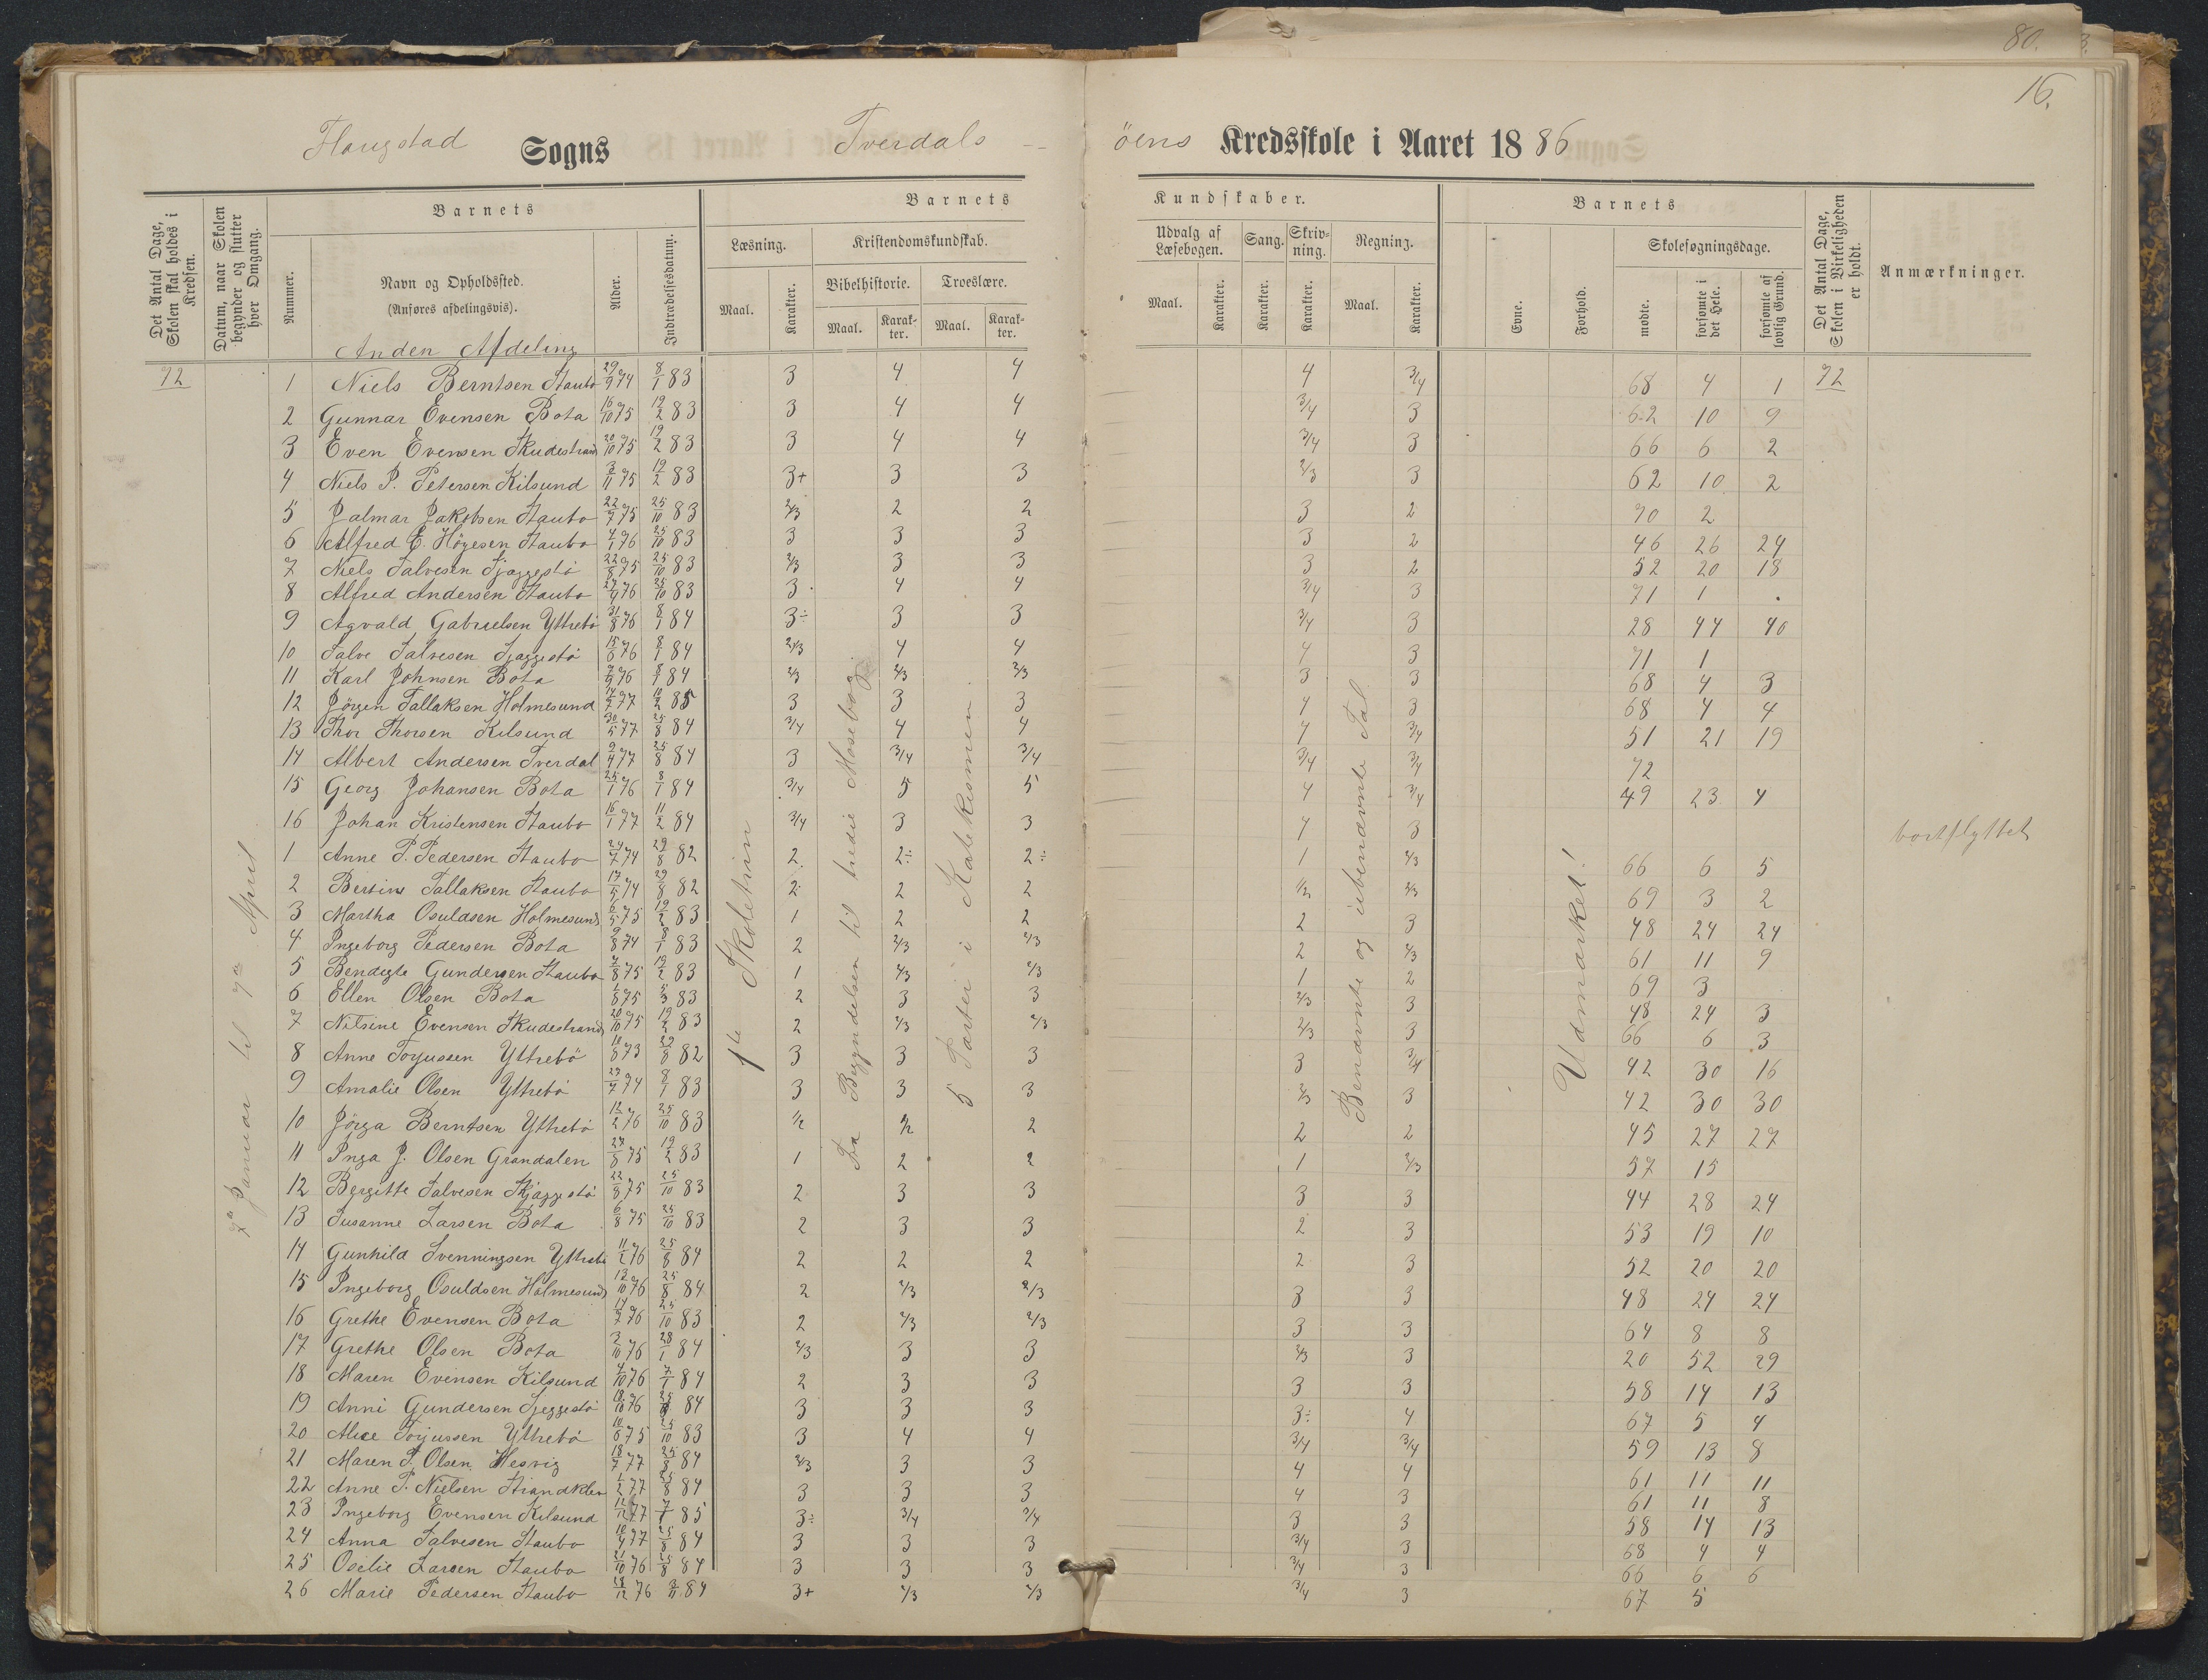 80.
16.
Flangstad Sogns Tverdals - öens Kredsskole i Aaret 1886
Det Antal Dage, Skolen skal holdes i Kredsen.
Datum, naar Skolen begynder og slutter hver Omgang.
Barnets
Nummer.
Navn og Opholdssted.
(Anføres afdelingsvis).
Alder.
Indtrædelsesdatum.
Barnets Kundskaber.
Læsning. Kristendomskundskab. Udvalg af Læsebogen. Sang. Skrivning. Regning.
Bibelhistorie. Troeslære.
Maal. Karakter. Maal. Karakter. Maal. Karakter. Maal. Karakter. Karakter. Karakter. Maal. Karakter.
Barnets
Evne. Forhold. Skolesøgningsdage.
mødte. forsømte i det Hele. forsømte af lovlig Grund.
Det Antal Dage, Skolen i Virkeligheden er holdt.
Anmærkninger.
Anden Afdeling
72 1 Niels Berntsen Staubo 29/9 74 8/1 83 3 4 4 4 3/4 68 4 1 72
2 Gunnar Evensen Bota 16/10 75 19/2 83 3 4 4 3/4 3 62 10 9
3 Even Evensen Skudestrand 20/10 75 19/2 83 3 4 4 3/4 3 66 6 2
4 Niels P. Petersen Kilsund 3/11 75 19/2 83 3+ 3 3 2/3 3 62 10 2
5 Jalmar Jakobsen Staubo 22/7 75 25/10 83 2/3 2 2 3 2 70 2
6 Alfred E. Höyesen Staubo 4/1 76 25/10 83 3 3 3 3 2 46 26 24
7 Niels Salvesen Sjaggestö 22/8 75 25/10 83 2/3 3 3 3 2 52 20 18
8 Alfred Andersen Staubo 27/9 76 25/10 83 3 4 4 3/4 3 71 1
9 Agvald Gabrielsen Yttrebö 31/8 76 8/1 84 3÷ 3 3 3/4 3 28 44 40
10 Salve Salvesen Sjaggestö 15/6 76 8/1 84 2/3 4 4 4 3 71 1
11 Karl Johnsen Bota 7/9 76 8/1 84 2/3 2/3 2/3 3 3 68 4 3
12 Jörgen Tallaksen Holmesund 14/7 77 10/2 85 3 3 3 4 3 68 4 4
13 Thor Thorsen Kilsund 30/5 77 25/8 84 3/4 4 4 4 3/4 51 21 19
14 Albert Andersen Tverdal 9/4 77 25/8 84 3 3/4 3/4 3/4 3/4 72
15 Georg Johansen Bota 25/1 76 8/1 84 3/4 5 5 4 3/4 49 23 4
16 Johan Kristensen Staubo 16/1 77 11/2 84 3/4 3 3 4 3 bortflyttet
1 Anne P. Pedersen Staubo 24/7 74 29/8 82 2 2÷ 2÷ 1 2/3 66 6 5
2 Bertine Tallaksen Staubo 17/5 74 29/8 82 2 2 2 1/2 2/3 69 3 2
3 Martha Osuldsen Holmesund 6/5 75 19/2 83 1 2 2 2 3 48 24 24
4 Ingeborg Pedersen Bota 9/8 74 8/1 83 2 2/3 2/3 2 2/3 61 11 9
5 Bendigte Gundersen Staubo 7/8 75 19/2 83 1 2/3 2/3 1 2 69 3
6 Ellen Olsen Bota 1/8 75 5/3 83 2 3 3 2/3 3 48 24 3
7 Nilsine Evensen Skudestrand 20/10 75 19/2 83 2 2/3 2/3 2/3 3 66 6 3
8 Anne Torjussen Yttrebö 18/8 73 29/8 82 3 3 3 3 3/4 42 30 16
9 Amalie Olsen Yttrebö 23/7 74 8/1 83 3 3 3 2/3 3 42 30 30
10 Jörga Berntsen Yttrebö 12/2 76 25/10 83 1/2 1/2 2 2 2 45 27 27
11 Inga J. Olsen Grandalen 27/8 75 19/2 83 1 2 2 1 2/3 57 15
12 Bergitte Salvesen Skjaggestö 22/8 75 25/10 83 2 3 3 3 3 44 28 24
13 Susanne Larsen Bota 6/8 75 25/10 83 2 3 3 2 3 53 19 10
14 Gunhild Svenningsen Yttrebö 11/2 76 25/8 84 2 2 2 2 3 52 20 20
15 Ingeborg Osuldsen Holmesund 13/10 76 25/8 84 2 2/3 2/3 3 3 48 24 24
16 Grethe Evensen Bota 17/7 76 25/10 83 2 2/3 2/3 3 3 64 8 8
17 Grethe Olsen Bota 3/10 76 28/1 84 2/3 3 3 2/3 3 20 52 29
18 Maren Evensen Kilsund 4/10 76 7/1 84 2 3 3 3 3 58 14 13
19 Anni Gundersen Sjeggestö 18/10 76 25/8 84 3 3 3 3÷ 4 67 5 4
20 Alice Torjussen Yttrebö 10/6 75 25/10 83 3 4 4 3/4 3/4 59 13 8
21 Maren T. Olsen Hesvig 18/7 77 25/8 84 2/3 3 3 4 4 61 11 11
22 Anne P. Nielsen Strandklev 1/2 77 25/8 84 3 3 3 4 3 61 11 8
23 Ingeborg Evensen Kilsund 12/12 77 7/1 85 3÷ 3/4 3/4 3 3 58 14 13
24 Anna Salvesen Staubo 10/4 77 25/8 84 3 3 3 3/4 3 68 4 4
25 Osilie Larsen Staubo 21/10 76 25/8 84 3 3 3 3/4 3 66 6 6
26 Marie Pedersen Staubo 28/12 76 3/11 84 3+ 2/3 2/3 3/4 3 67 5
7de Januar til 7de April
1te Skoletrin
Fra Begyndelsen til tredie Mosebog.
5 Parter i Katekismen
Benævnte og ubenævnte Tal
Udmærket!